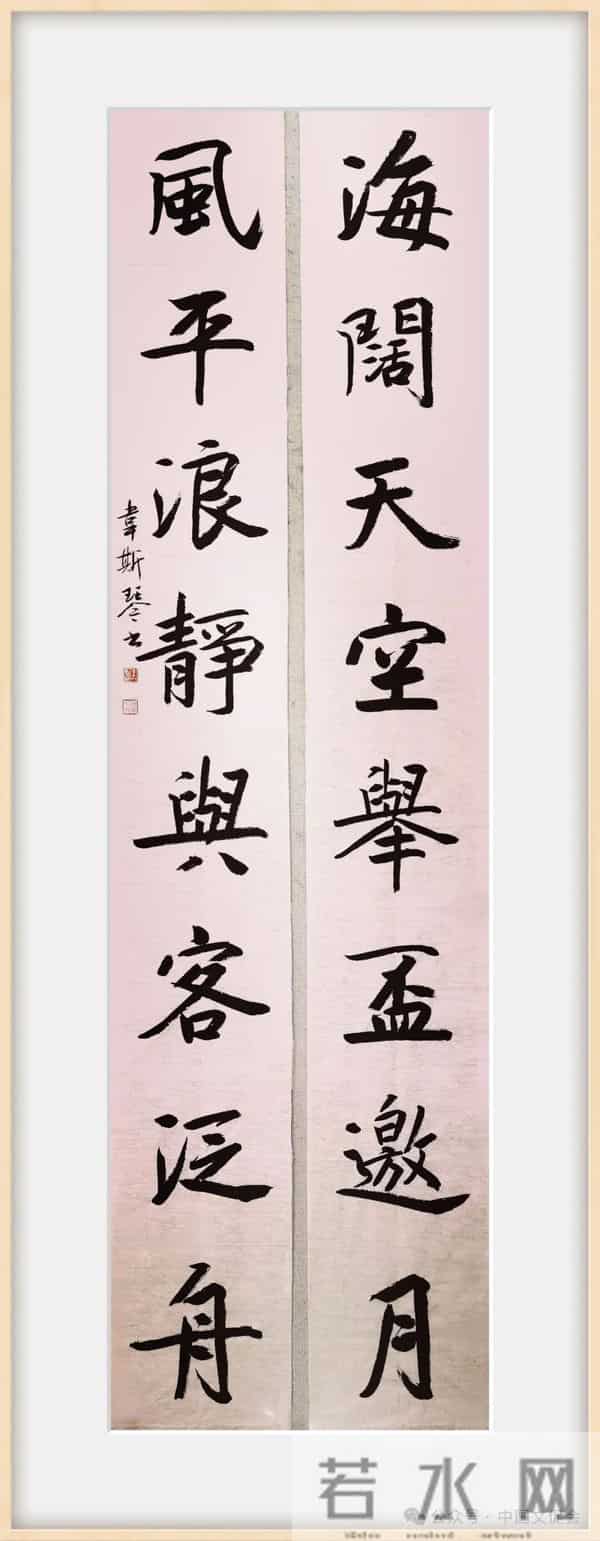 海闊天空舉盃邀月
風平浪靜與客泛舟
韋斯琴書
若水网
公众号·中国文促会